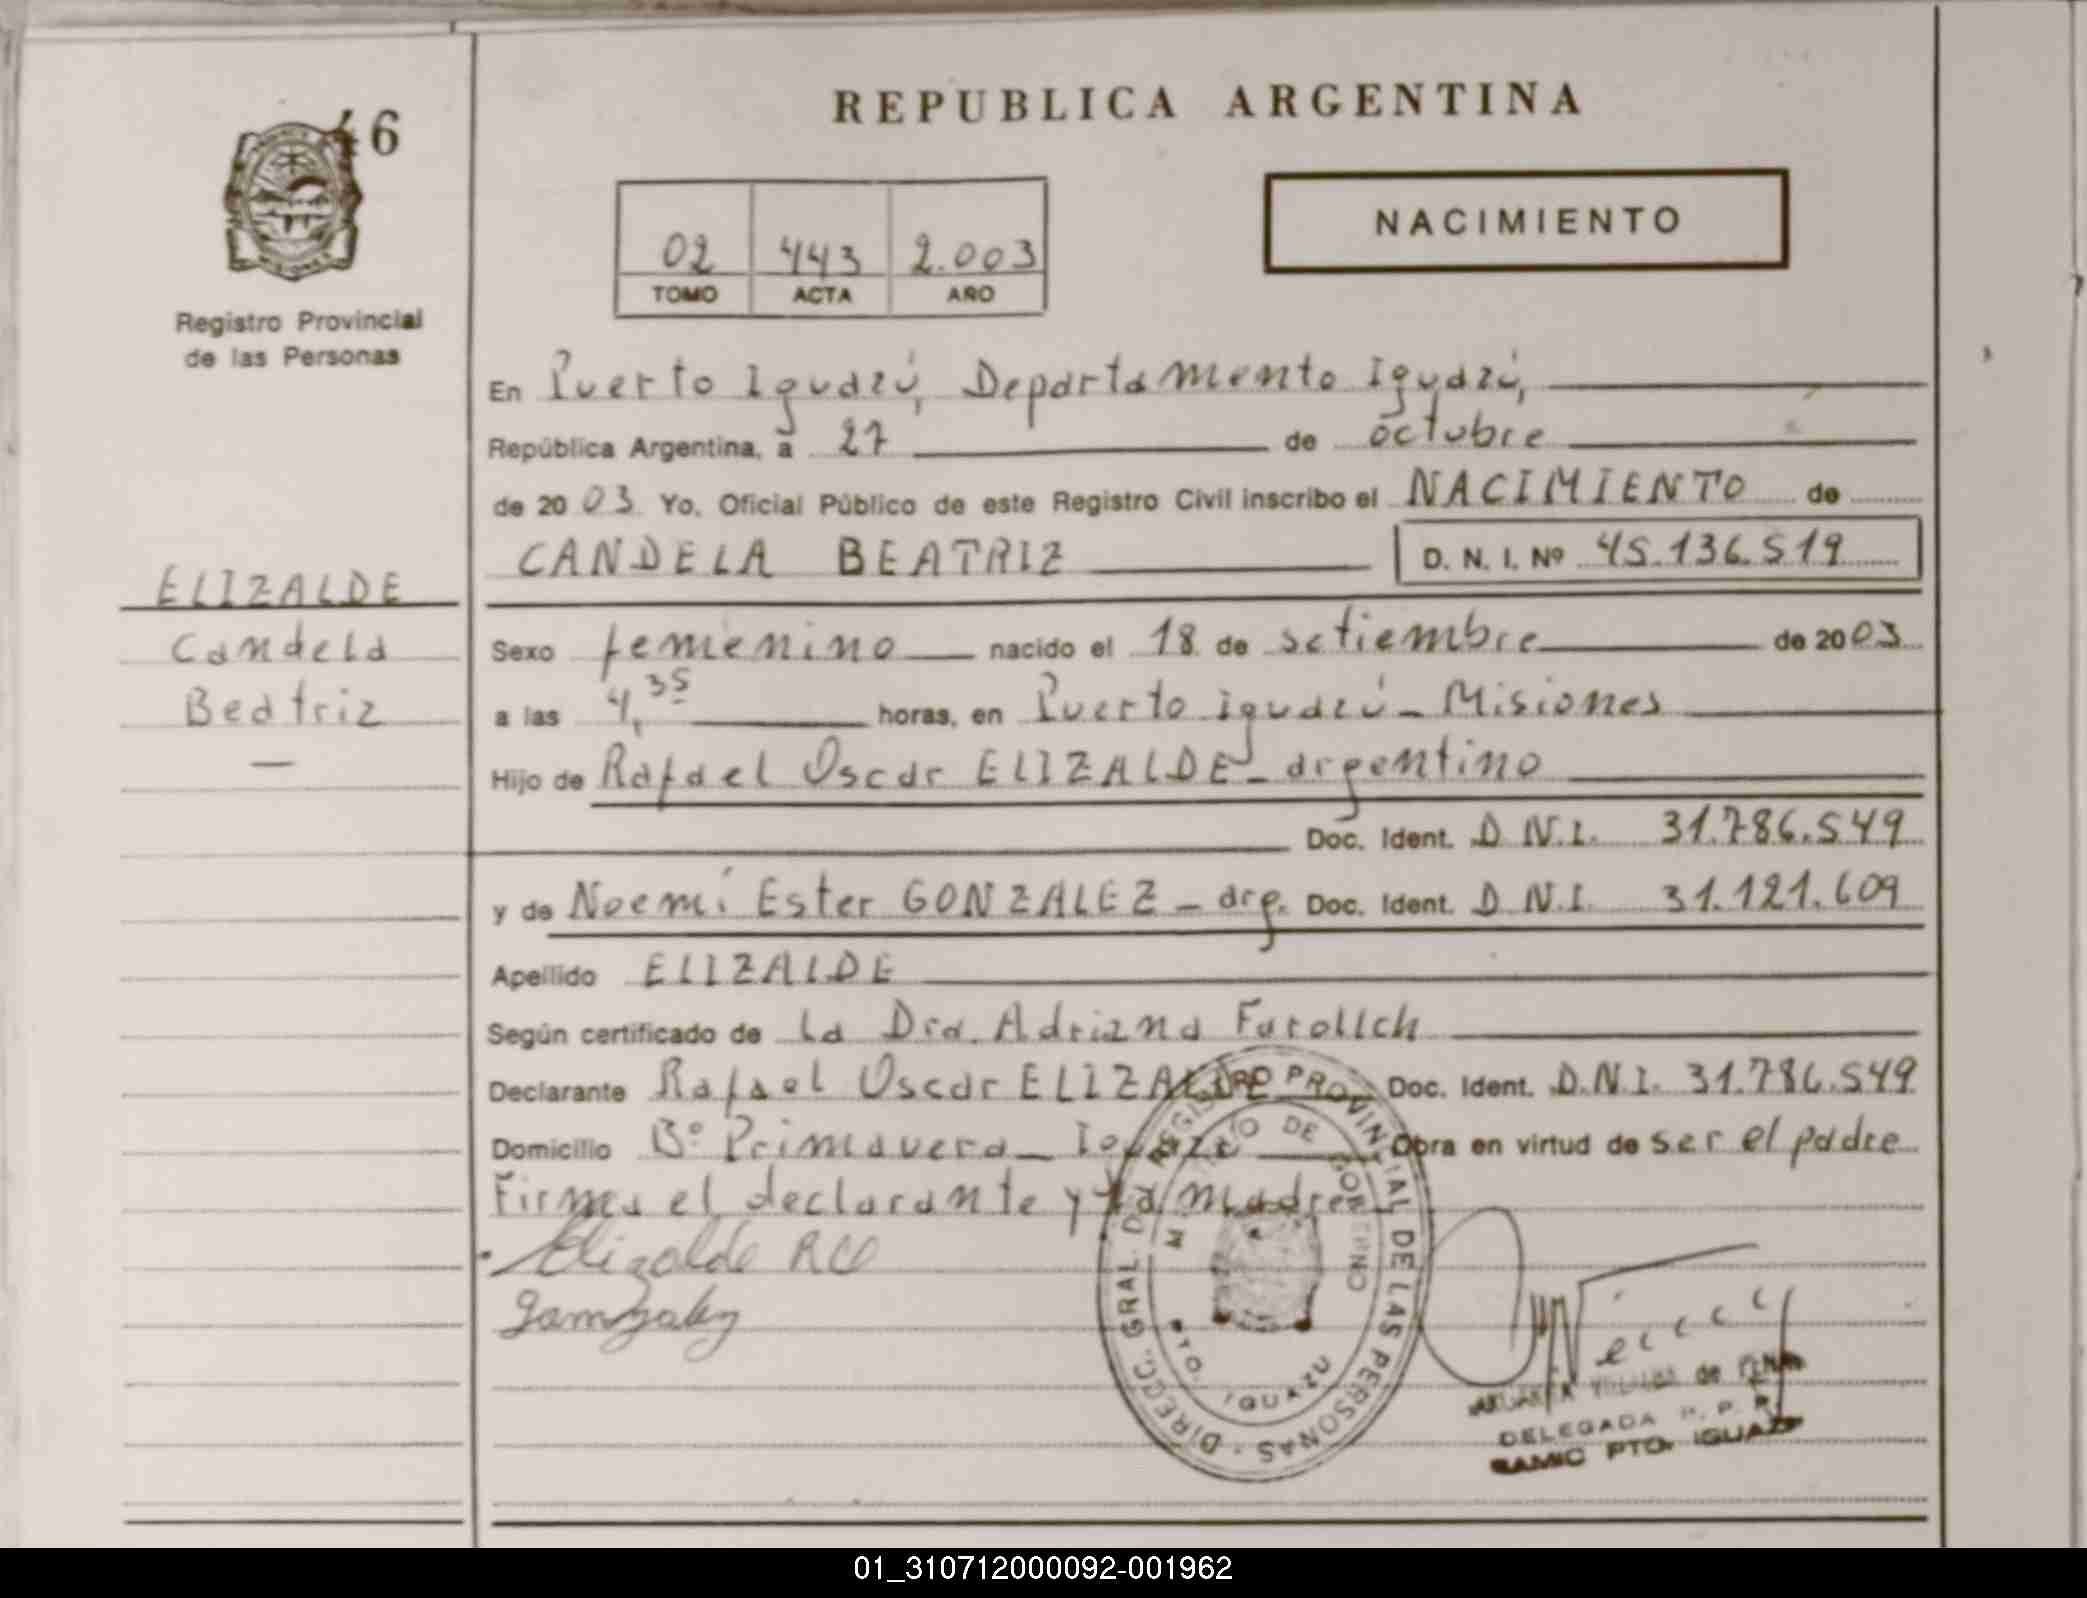 REPUBLICA ARGENTINA
46
NACIMIENTO
02 443 2.003
TOMO ACTA AÑO
Registro Provincial
de las Personas
En Puerto Iguazú, Departamento Iguazú,
República Argentina, a 27 de octubre
de 2003 Yo, Oficial Público de este Registro Civil inscribo el NACIMIENTO de
CANDELA BEATRIZ D. N. I. Nº 45.136.519
ELIZALDE
Candela
Beatriz
—
Sexo femenino nacido el 18 de setiembre de 2003
a las 4,35 horas, en Puerto Iguazú - Misiones
Hijo de Rafael Oscar ELIZALDE - argentino
Doc. Ident. D.N.I. 31.786.549
y de Noemí Ester GONZALEZ - arg. Doc. Ident. D.N.I. 31.121.609
Apellido ELIZALDE
Según certificado de la Dra. Adriana
Declarante Rafael Oscar ELIZALDE Doc. Ident. D.N.I. 31.786.549
Domicilio Bº Primavera - Iguazú Obra en virtud de ser el padre
Firma el declarante y la madre
Elizalde RO
DIRECC. GRAL. DE REGISTRO PROVINCIAL DE LAS PERSONAS
MINISTERIO DE GOBIERNO
PTO. IGUAZU
de
DELEGADA R. P. P.
SAMIC PTO. IGUAZU
01_310712000092-001962